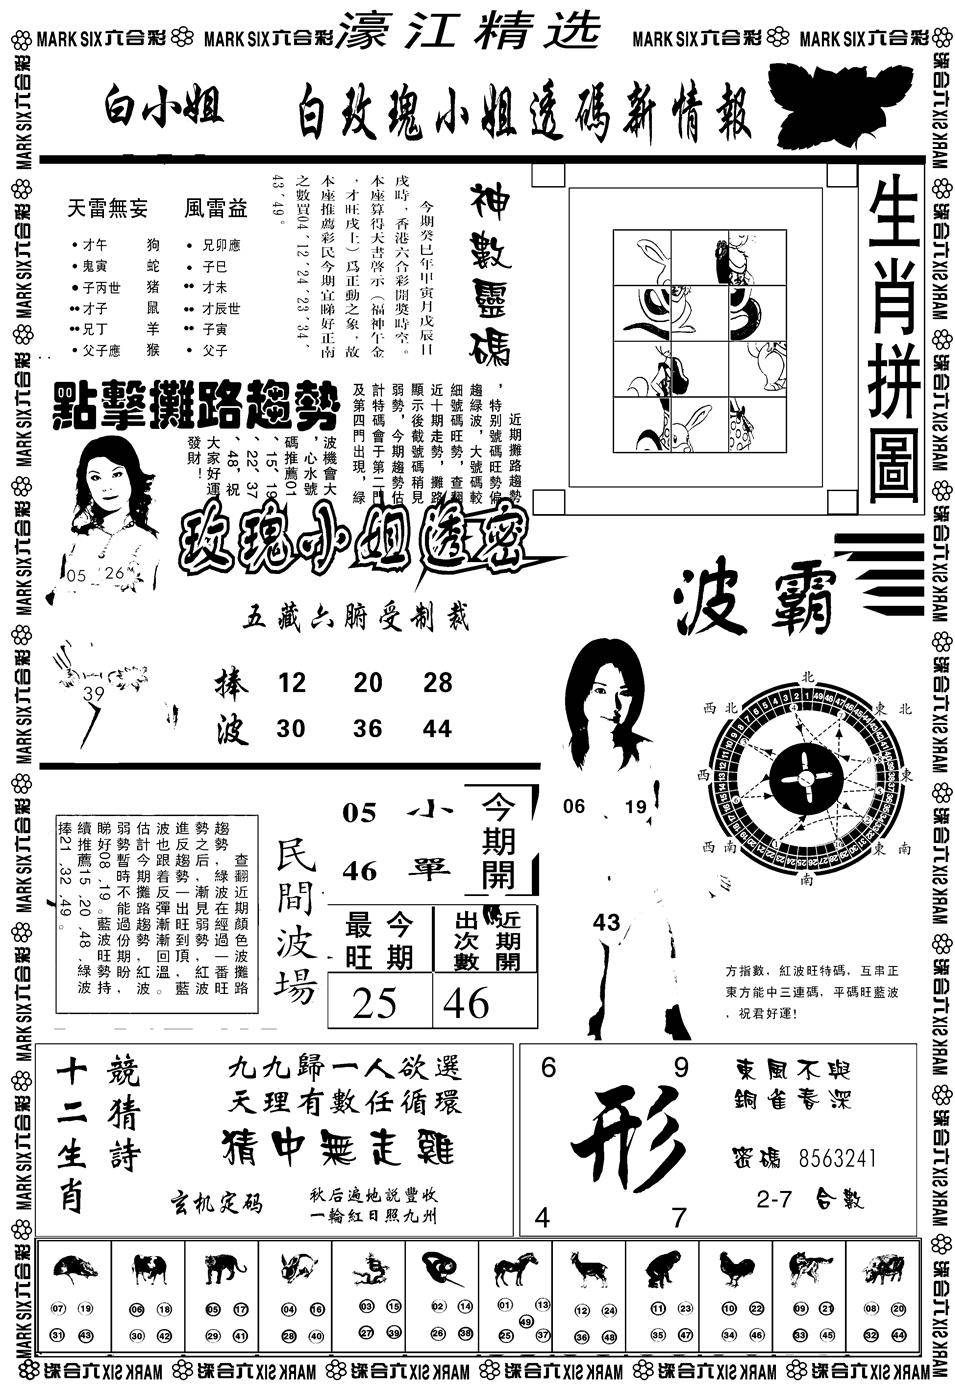 MARK SIX六合彩 MARK SIX六合彩 濠江精选 MARK SIX六合彩 MARK SIX六合彩
白小姐 白玫瑰小姐透碼新情報
天雷無妄 風雷益
才午 狗 兄卯應
鬼寅 蛇 子巳
子丙世 猪 才未
才子 鼠 才辰世
兄丁 羊 子寅
父子應 猴 父子
神數靈碼
今期癸巳年甲寅月戊辰日
戌時，香港六合彩開獎時空。
本座算得天書啓示（福神午金
，才旺戌上）爲正動之象，故
本座推薦彩民今期宜睇好正南
之數買04、12、24、23、34、
43、49。
生肖拼圖
點擊攤路趨勢
近期攤路趨勢
，特别號碼旺勢偏
趨緑波，大號碼較
細號碼旺勢，查翻
近十期走勢，攤路
顯示後截號碼稍見
弱勢，今期趨勢估
計特碼會于第二門
及第四門出現，緑
波機會大
，心水號
碼推薦01
、15、19
、22、37
、48，祝
大家好運
發財！
05 26
39
玫瑰小姐透密
五藏六腑受制裁
捧 12 20 28
波 30 36 44
波霸
北
西北 東北
西 東
西南 東南
南
06 19
43
方指數，紅波旺特碼，互串正
東方能中三連碼，平碼旺藍波
，祝君好運！
查翻近期顏色波攤路
趨勢，緑波在經過一番旺
勢之后，漸見弱勢，紅波
進反趨勢一出旺到頂，藍
波也跟着反彈漸漸回温。
估計今期攤路趨勢紅波
弱勢暫時不能過份期盼，
睇好08、19。藍波旺勢持
續推薦15、20、48，緑波
捧21、32、49。
民間波場
05 小 今期開
46 單
今期最旺 近期開出次數
25 46
競猜詩
十二生肖
九九歸一人欲選
天理有數任循環
猜中無走雞
玄机定码
秋后遍地説豐收
一輪紅日照九州
6 9
形
4 7
東風不與
銅雀春深
密碼 8563241
2-7 合數
07 19 06 18 05 17 04 16 03 15 02 14 01 13 12 24 11 23 10 22 09 21 08 20
49
31 43 30 42 29 41 28 40 27 39 26 38 25 37 36 48 35 47 34 46 33 45 32 44